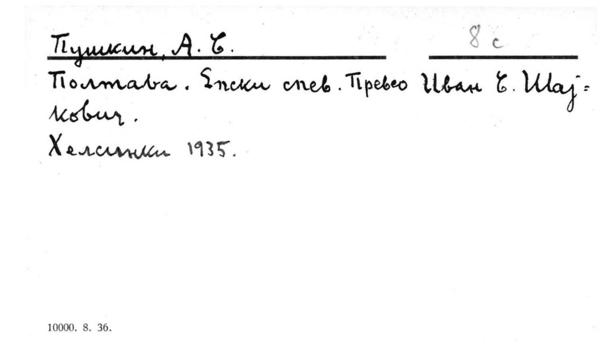 Пушкин, А. С. 8 с
Полтава. Епски спев. Превео Иван С. Шај=
кович.
Хелсинки 1935.
10000. 8. 36.